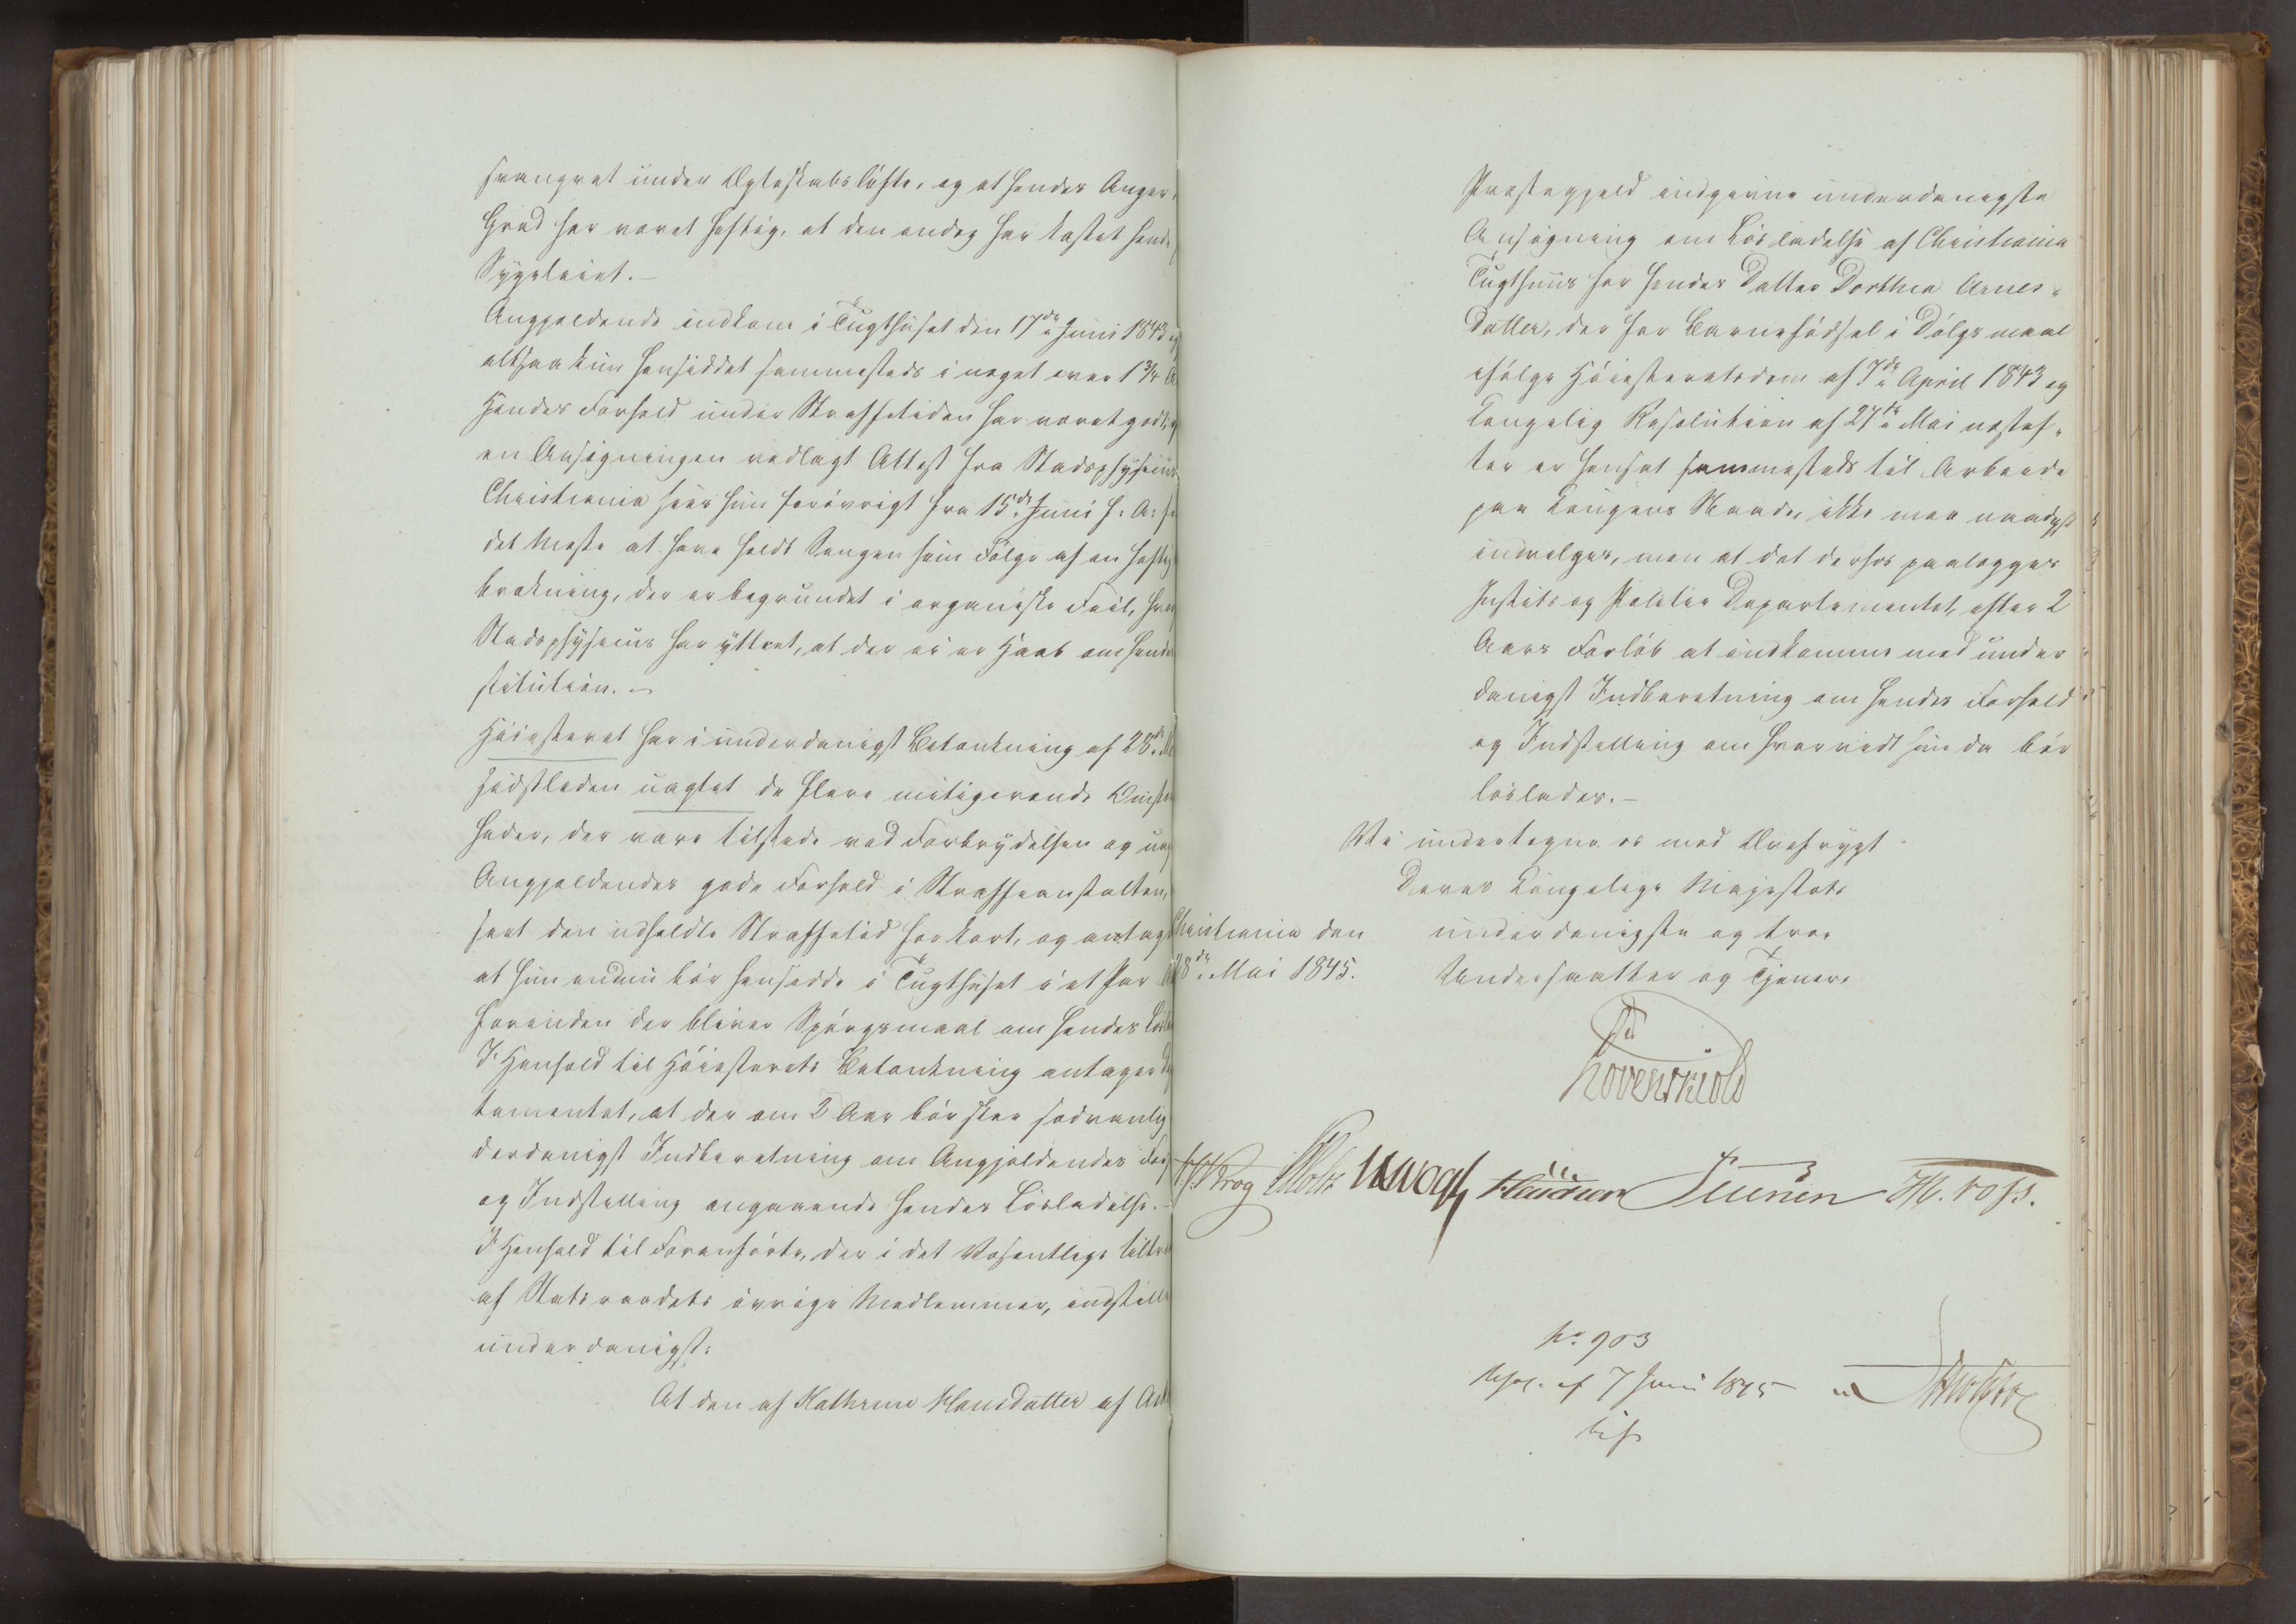 svangret under Ægteskabsløfte, og at hendes Anger,
Graad har været heftig, at den endog har kastet hende
Sygeleiet.-
Angjeldende indkom i Tugthuset den 17de Juni 1843 og
altsaa kun hensiddet sammesteds i noget over 1¾ A
Hendes Forhold under Straffetiden har været godt, og
en Ansøgningen vedlagt Attest fra Stadsphysicus
Christiania sees hun forøvrigt fra 15de Juni f: A: for
det Meste at have holdt Sengen som Følge af en heftig
brækning, der er begrundet i organiske Feil, hvor
Stadsphysicus har yttret, at der ei er Haab om hendes
stitution.-
Høiesteret har i underdanigst Betænkning af 28de
sidstleden uagtet de flere mitigerende Omstæn
heder, der vare tilstede ved Forbrydelsen og
Angjeldendes gode Forhold i Straffeanstalten,
seet den udholdte Straffetid for kort, og antaget
at hun endnu bør hensidde i Tugthuset i et Par
forinden der bliver Spørgsmaal om hendes
I Henhold til Høiesterets Betænkning antager
tementet, at der om 2 Aar bør skee sædvanlig
derdanigst Indberetning om Angjeldendes For
og Indstilling angaaende hendes Løsladelse.-
I Henhold til Foranførte, der i det Væsentlige tiltræ
af Statsraadets øvrige Medlemmer, indstilles
underdanigst:
At den af Kathrine Hansdatter af
Præstegjeld indgivne underdanigste
Ansøgning om Løsladelse af Christiania
Tugthuus for hendes Datter Dorthea Arnes-
datter, der for Barnefødsel i Dølgsmaal
ifølge Høiesteretsdom af 7de April 1843 og
Kongelig Resolution af 27de Mai næstef-
ter er hensat sammesteds til Arbeide
paa Kongens Naade, ikke maa naadigst
indvilges, men at det derhos paalægges
Justits og Politie Departementet, efter 2
Aars Forløb at indkomme med under
danigst Indberetning om hendes Forhold
og Indstilling om hvorvidt hun da bør
løslades.-
Vi undertegne os med Ærefrygt
Deres Kongelige Majestæts
Christiania den underdanigste og troe
28de Mai 1845. Undersaatter og Tjenere
Løvenskiold
Krog Holst Vogt Sunen Foss.
No 903
Resol. af 7 Juni 1845